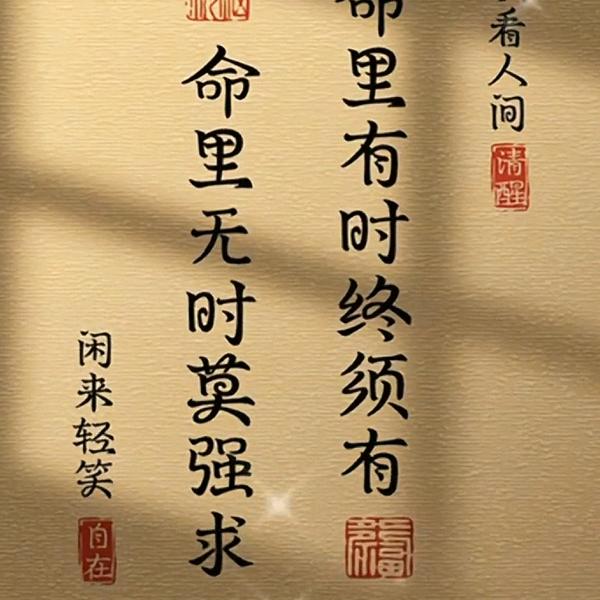 看人间
清醒
命里有时终须有
命里无时莫强求
闲来轻笑
自在